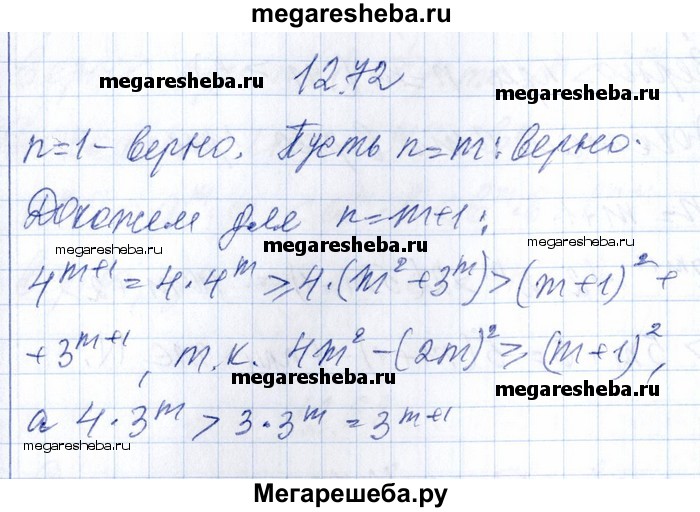 megaresheba.ru
12.72
megaresheba.ru
megaresheba.ru
n=1 - верно. Пусть n=m: верно.
Докажем для n=m+1:
megaresheba.ru
megaresheba.ru
megaresheba.ru
4^{m+1} = 4·4^m ≥ 4·(m^2+3^m) > (m+1)^2 +
+3^{m+1}, т.к. 4m^2 - (2m)^2 ≥ (m+1)^2,
megaresheba.ru
megaresheba.ru
а 4·3^m > 3·3^m = 3^{m+1}
megaresheba.ru
megaresheba.ru
Мегарешеба.ру